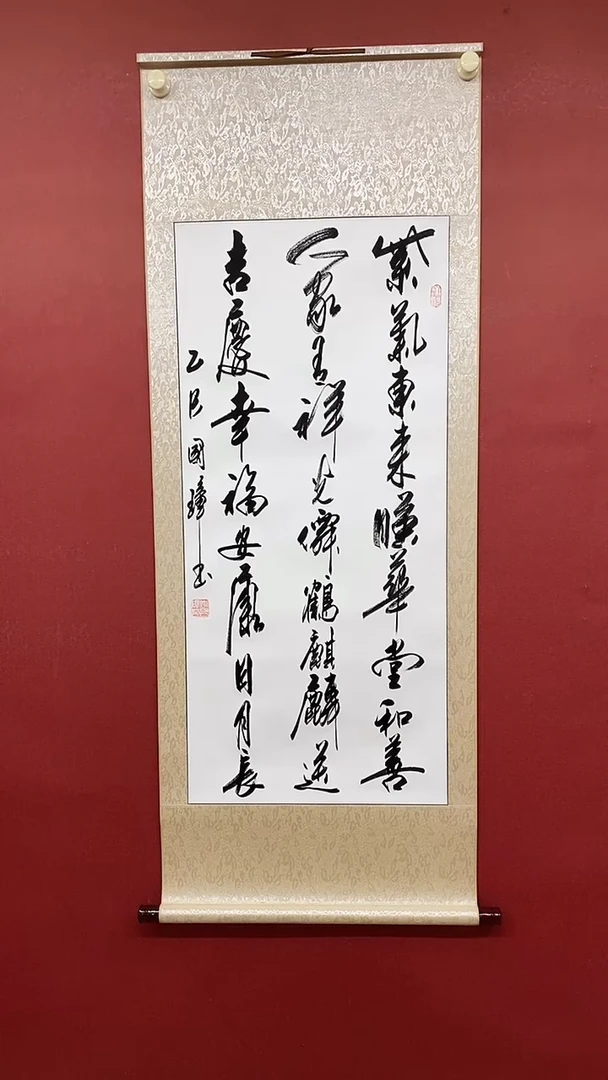 紫氣東來暎華堂和善
人家有祥光僊鶴麒麟送
吉慶幸福安康日月長
乙巳國璋书